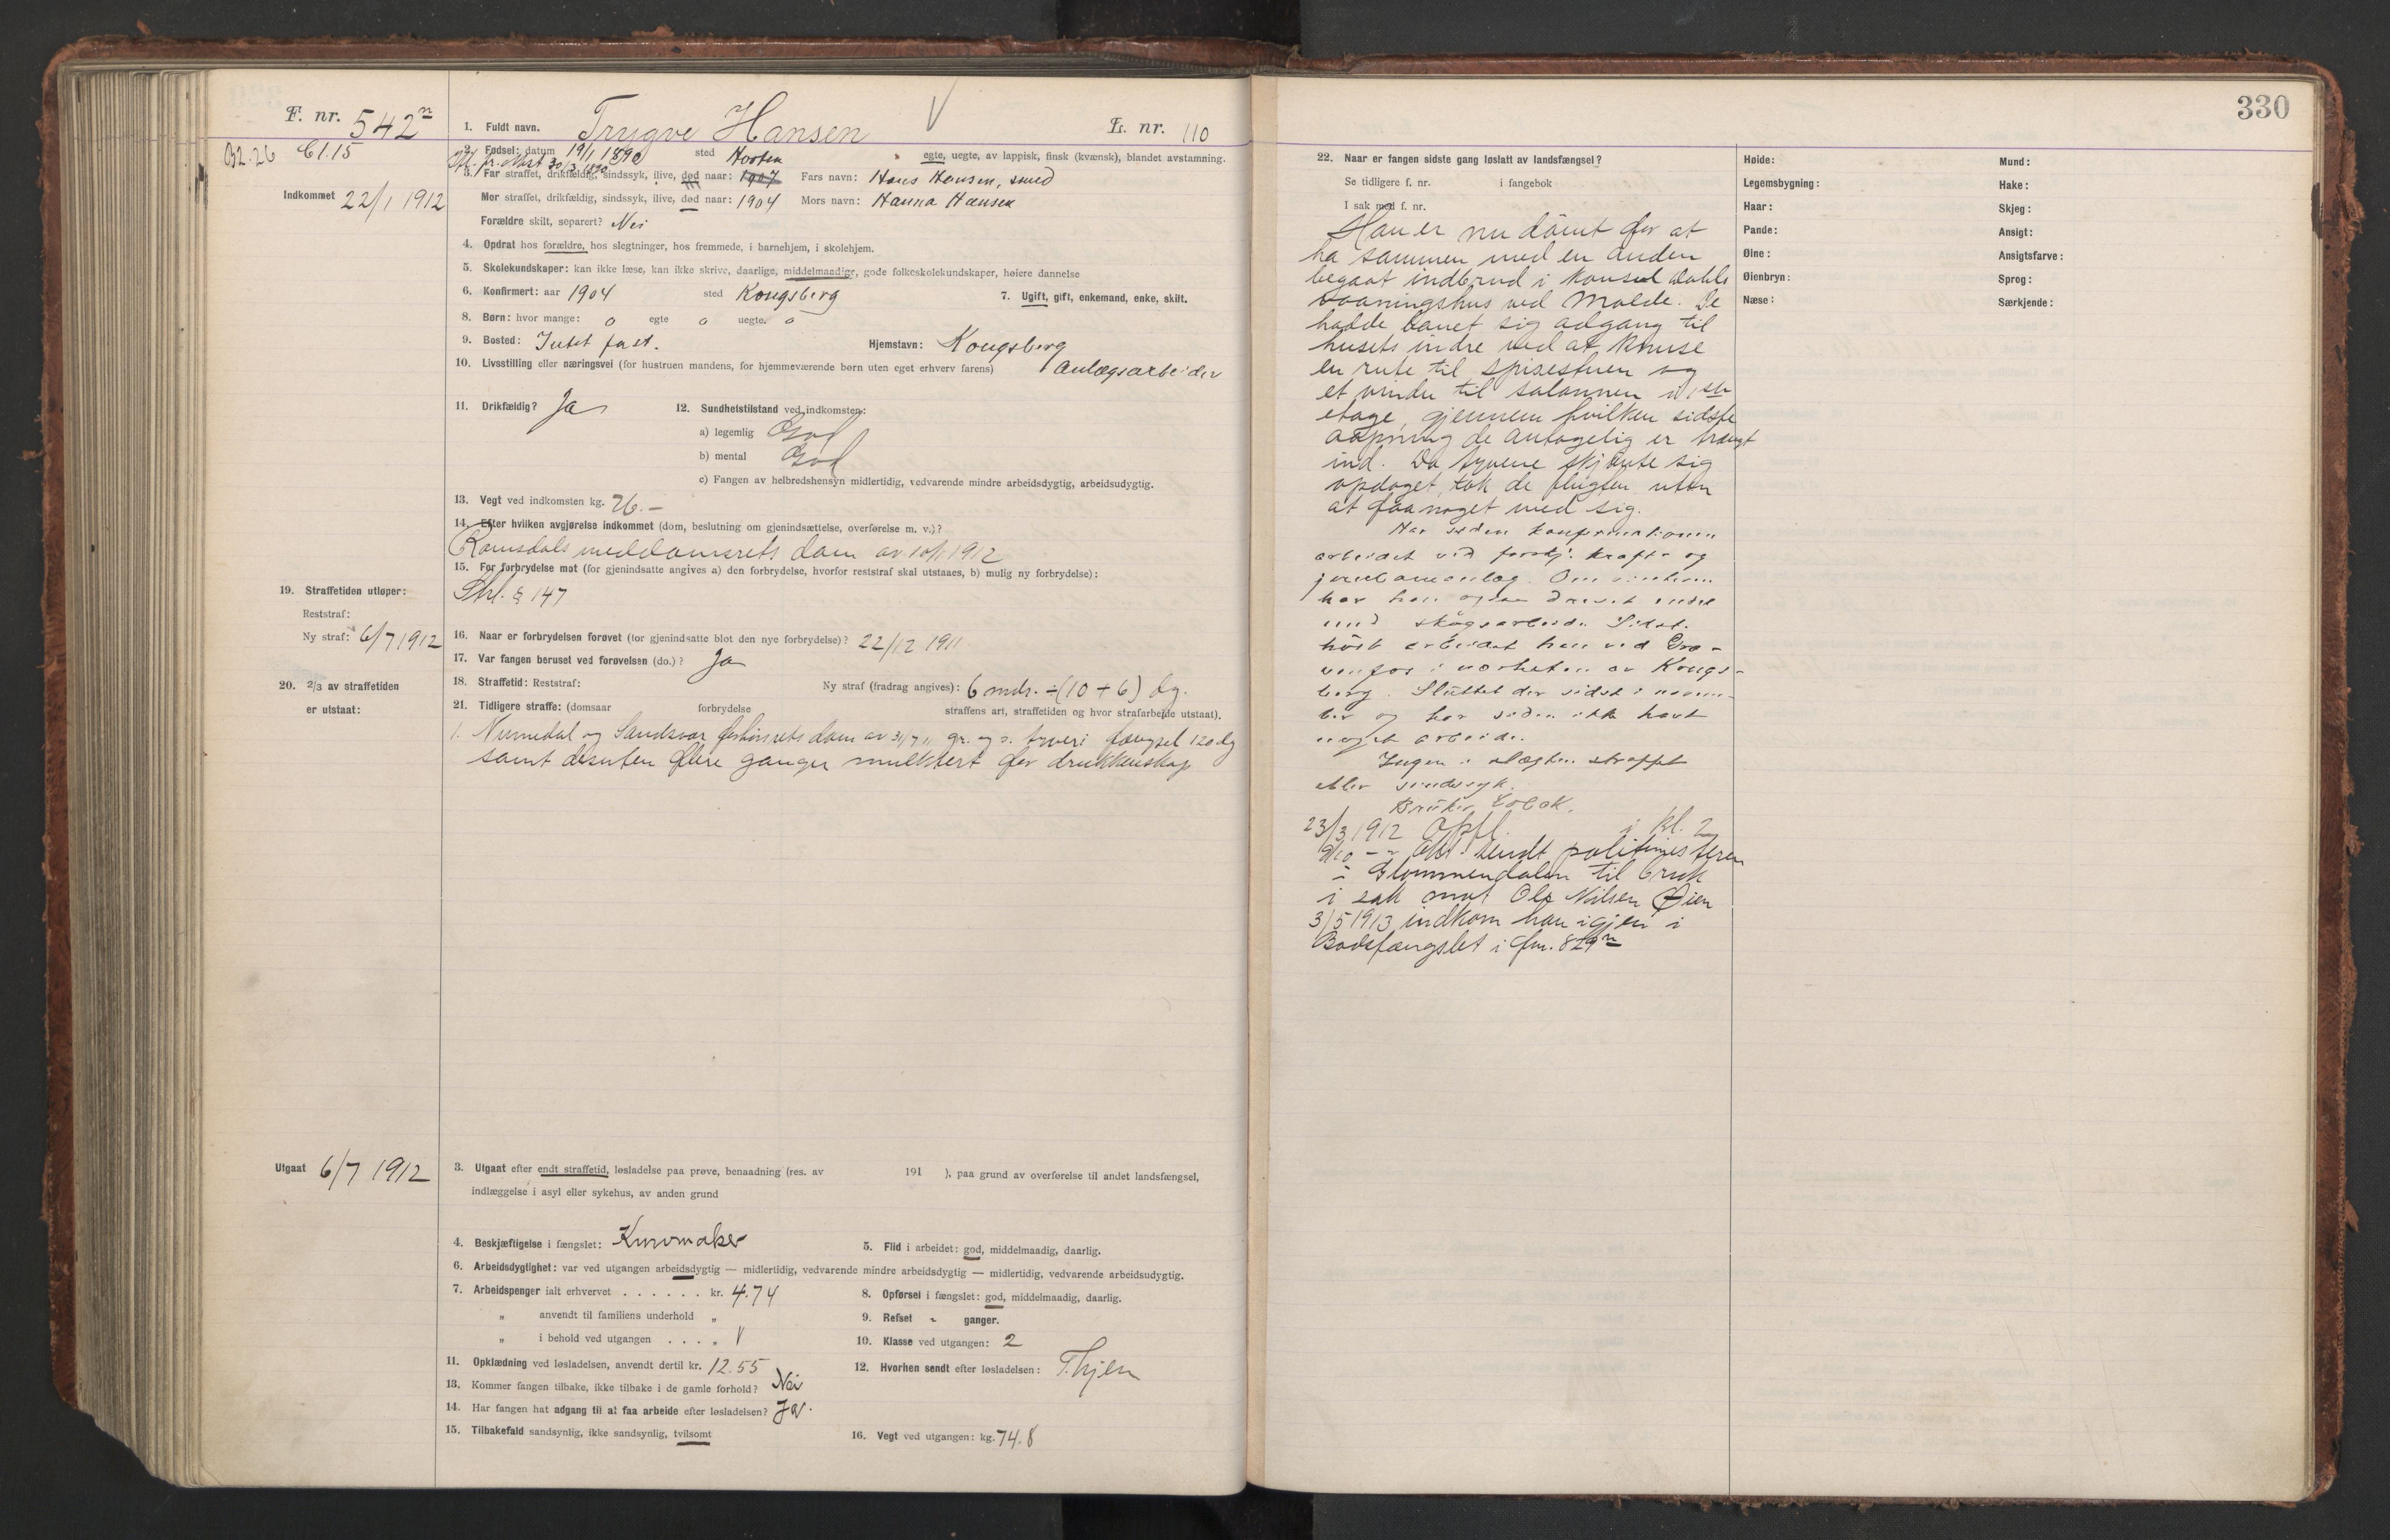 330
F. nr. 542n
B2.26 Cl.15
Indkommet 22/1 1912
1. Fuldt navn. Trygve Hansen L. nr. 110
2. Fødsel: datum 19/1 1890 sted Horten egte, uegte, av lappisk, finsk (kvænsk), blandet avstamning.
30/3 1890
3. Far straffet, drikfældig, sindssyk, ilive, død naar: 1907 Fars navn: Hans Hansen, smed
Mor straffet, drikfældig, sindssyk, ilive, død naar: 1904 Mors navn: Hanna Hansen
Forældre skilt, separert? Nei
4. Opdrat hos forældre, hos slegtninger, hos fremmede, i barnehjem, i skolehjem.
5. Skolekundskaper: kan ikke læse, kan ikke skrive, daarlige, middelmaadige, gode folkeskolekundskaper, høiere dannelse
6. Konfirmert: aar 1904 sted Kongsberg 7. Ugift, gift, enkemand, enke, skilt.
8. Børn: hvor mange: 0 egte 0 uegte. 0
9. Bosted: Intet fast. Hjemstavn: Kongsberg
10. Livsstilling eller næringsvei (for hustruen mandens, for hjemmeværende børn uten eget erhverv farens) Anlægsarbeider
11. Drikfældig? Ja 12. Sundhetstilstand ved indkomsten:
a) legemlig God
b) mental God
c) Fangen av helbredshensyn midlertidig, vedvarende mindre arbeidsdygtig, arbeidsudygtig.
13. Vegt ved indkomsten kg. 76.-
14. Efter hvilken avgjørelse indkommet (dom, beslutning om gjenindsættelse, overførelse m. v.)?
Romsdals meddomsrets dom av 10/1 1912
15. For forbrydelse mot (for gjenindsatte angives a) den forbrydelse, hvorfor reststraf skal utstaaes, b) mulig ny forbrydelse):
Strl. § 147
19. Straffetiden utløper:
Reststraf:
Ny straf: 6/7 1912
16. Naar er forbrydelsen forøvet (for gjenindsatte blot den nye forbrydelse)? 22/12 1911
17. Var fangen beruset ved forøvelsen (do.)? Ja
18. Straffetid: Reststraf: Ny straf (fradrag angives): 6 mdr. ÷ (10 + 6) dg.
20. 2/3 av straffetiden
er utstaat:
21. Tidligere straffe: (domsaar forbrydelse straffens art, straffetiden og hvor strafarbeide utstaat).
1. Numedal og Sandsvær forhørsrets dom av 31/7 11 gr. og s. tyveri fængsel 120 dg
samt desuten flere ganger mulktert for drukkenskap
Utgaat 6/7 1912
3. Utgaat efter endt straffetid, løsladelse paa prøve, benaadning (res. av 191 ), paa grund av overførelse til andet landsfængsel,
indlæggelse i asyl eller sykehus, av anden grund
4. Beskjæftigelse i fængslet: Kurvmaker 5. Flid i arbeidet: god, middelmaadig, daarlig.
6. Arbeidsdygtighet: var ved utgangen arbeidsdygtig — midlertidig, vedvarende mindre arbeidsdygtig — midlertidig, vedvarende arbeidsudygtig.
7. Arbeidspenger ialt erhvervet . . . . . . kr. 4.74 8. Opførsel i fængslet: god, middelmaadig, daarlig.
„ anvendt til familiens underhold „ 9. Refset - ganger.
„ i behold ved utgangen . . . „ 10. Klasse ved utgangen: 2
11. Opklædning ved løsladelsen, anvendt dertil kr. 12.55 12. Hvorhen sendt efter løsladelsen: T. hjem
13. Kommer fangen tilbake, ikke tilbake i de gamle forhold? Nei
14. Har fangen hat adgang til at faa arbeide efter løsladelsen? Ja.
15. Tilbakefald sandsynlig, ikke sandsynlig, tvilsomt 16. Vegt ved utgangen: kg. 74.8
22. Naar er fangen sidste gang løslatt av landsfængsel?
Se tidligere f. nr. i fangebok
I sak med f. nr.
Han er nu dømt for at
ha sammen med en anden
begaat indbrud i konsul Dahls
vaaningshus ved Molde. De
hadde banet sig adgang til
husets indre ved at knuse
en rute til spisestuen og
et vindu til salonnen i 1ste
etage, gjennem hvilken sidste
aapning de antagelig er trængt
ind. Da tyvene skjønte sig
opdaget, tok de flugten uten
at faa noget med sig.
Har siden konfirmationen
arbeidet ved forskj. kraft- og
jernbaneanlæg. Om vinteren
har han ogsaa drevet endel
med skogsarbeide. Sidst.
høst arbeidet han ved
i nærheten av Kongs-
berg. Sluttet der sidst i novem-
ber og har siden ikke havt
noget arbeide.
Ingen i slægten straffet
eller sindssyk.
Bruker tobak.
23/3 1912 Opfl. i kl. 2
9/10 - " Utskr. sendt politimesteren
i Glommendalen til bruk
i sak mot Ole Nilsen Øien
3/5 1913 indkom han igjen i
Bodsfængslet i fnr. 829n
Høide: Mund:
Legemsbygning: Hake:
Haar: Skjeg:
Pande: Ansigt:
Øine: Ansigtsfarve:
Øienbryn: Sprog:
Næse: Særkjende: